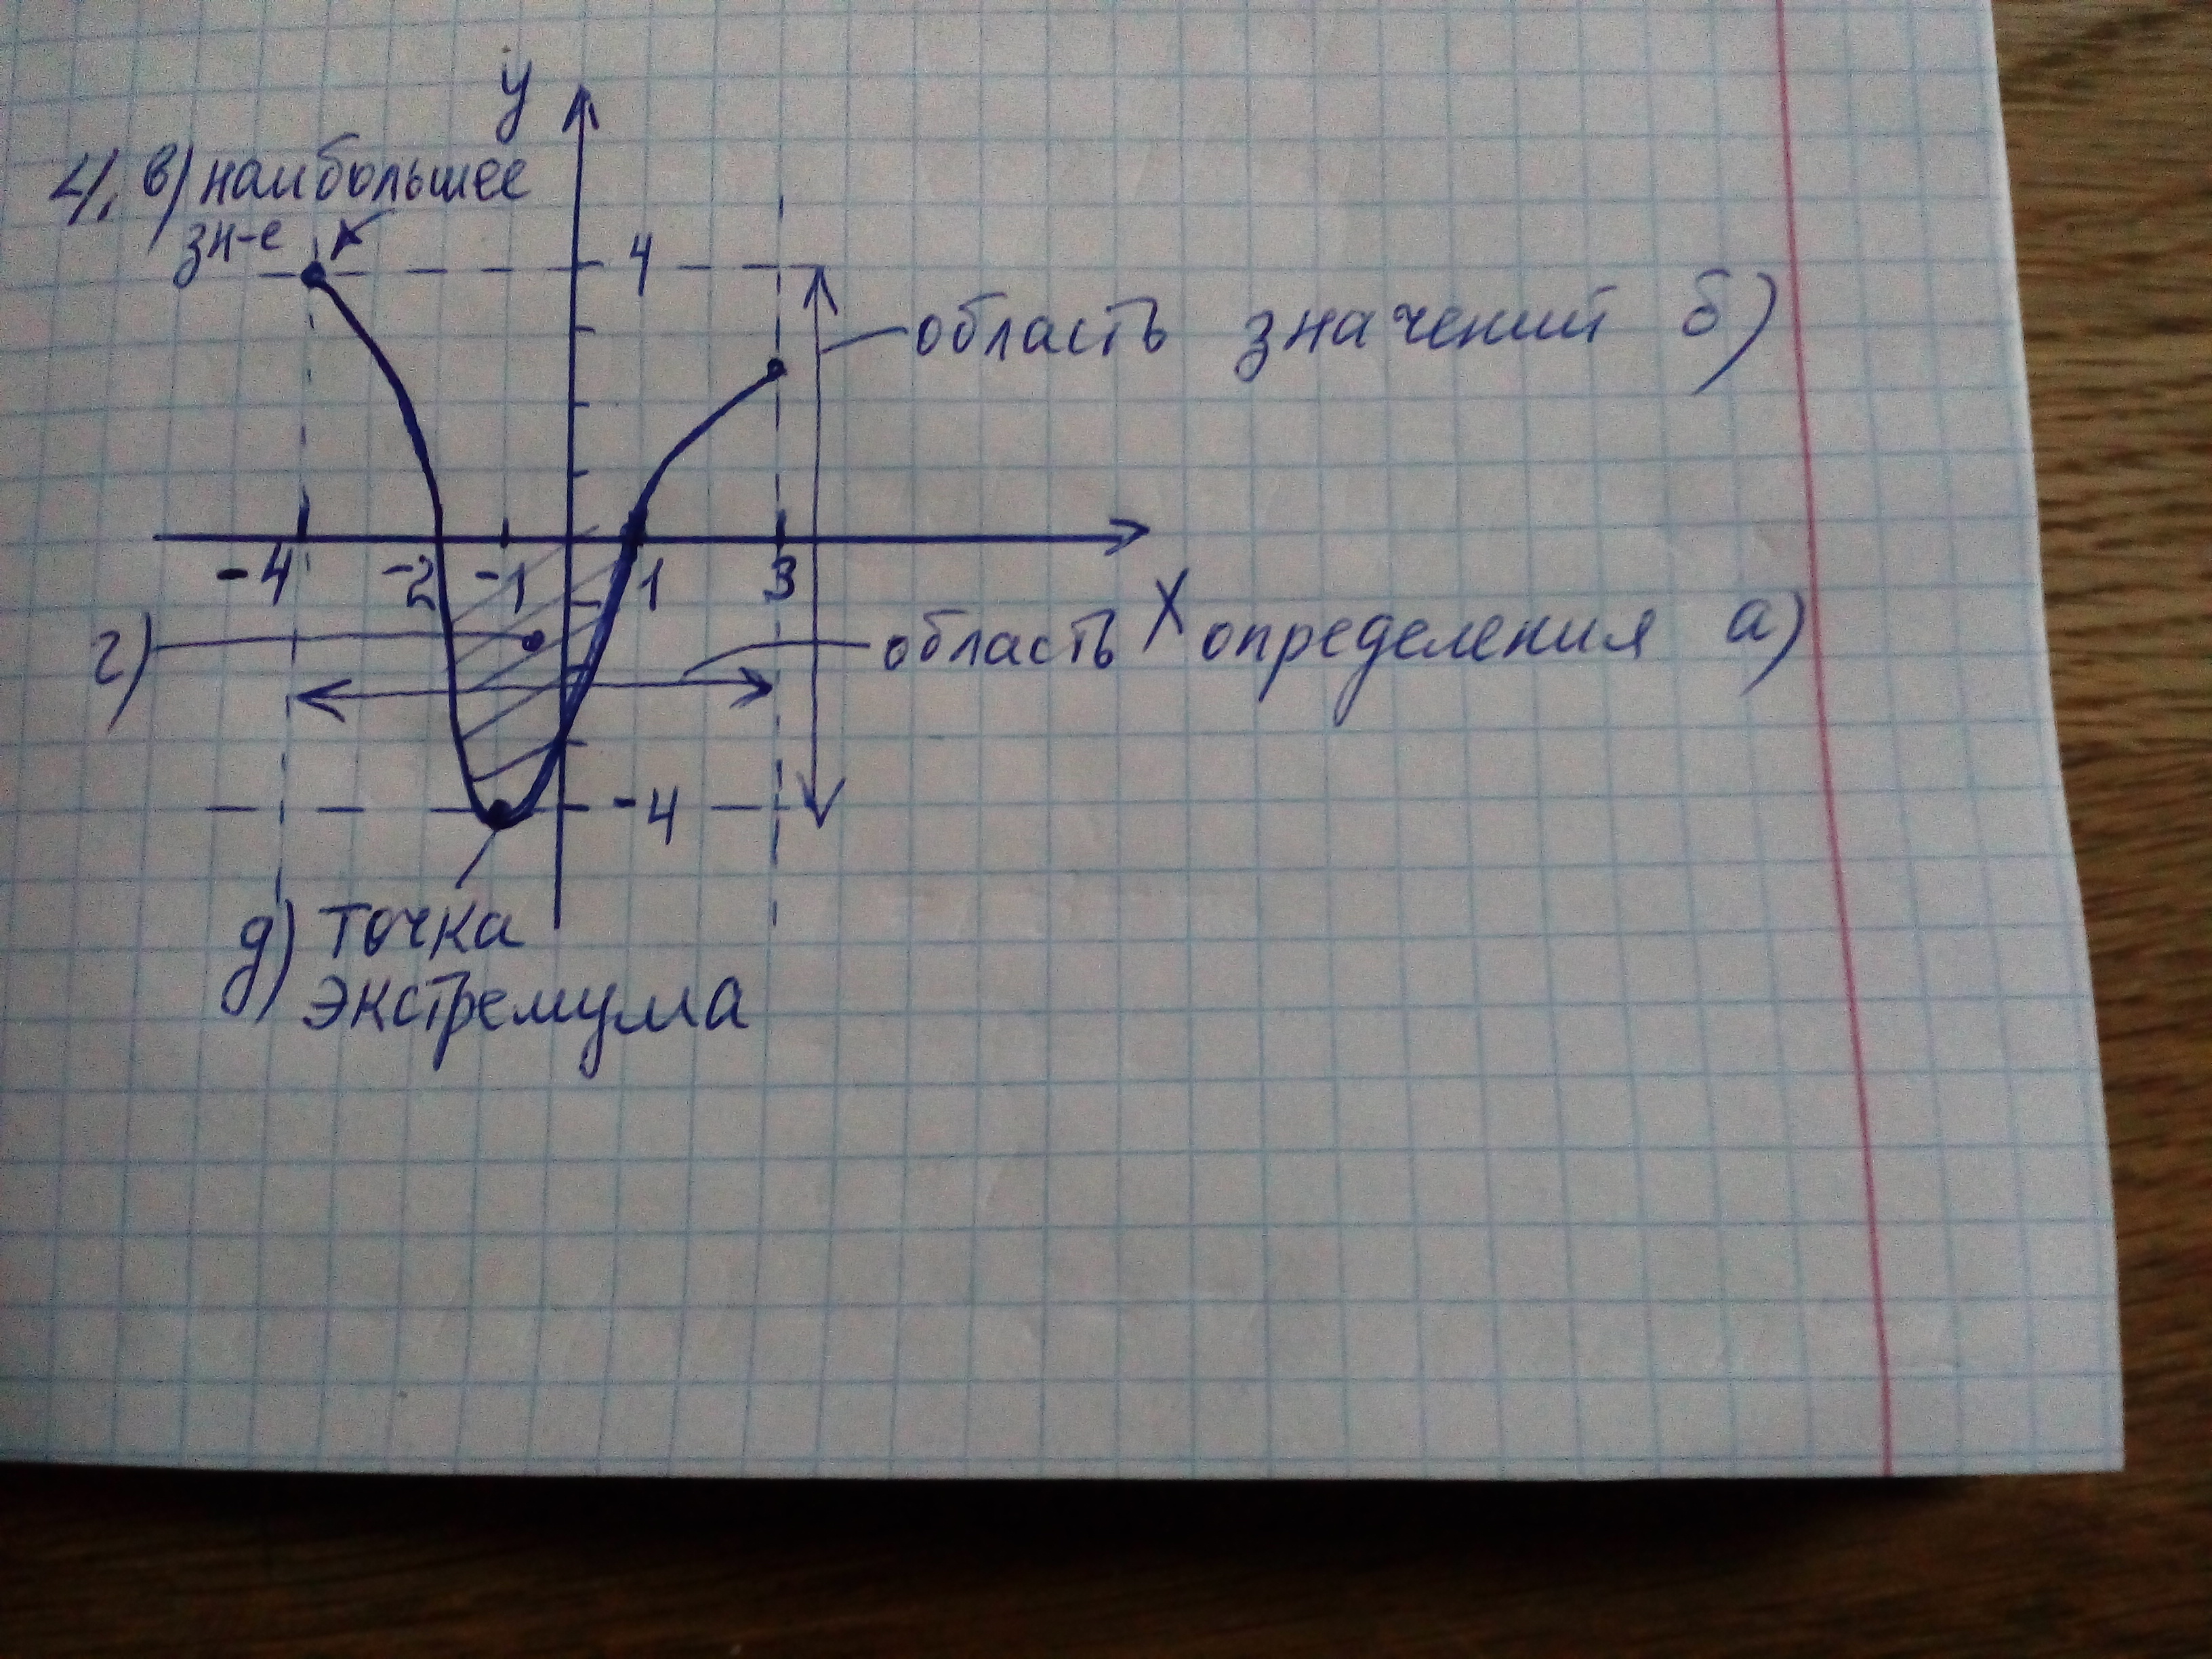 y
4. в) наибольшее
зн-е
4
область значений б)
-4 -2 -1 1 3
X
г)
область определения а)
-4
д) точка
экстремума